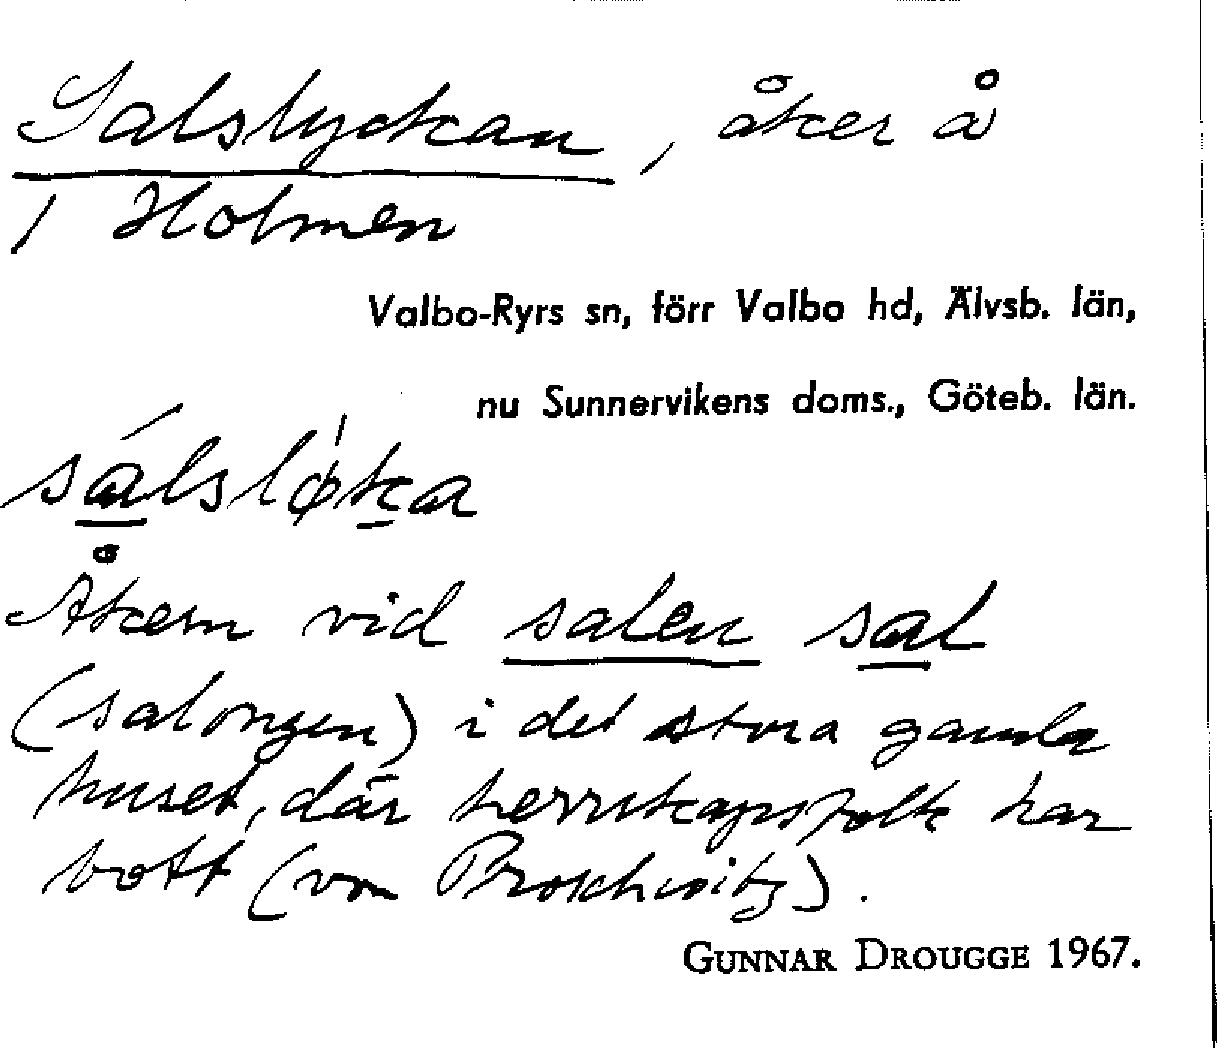 Salslyckan, åker å
1 Holmen
Valbo-Ryrs sn, förr Valbo hd, Älvsb. län,
nu Sunnervikens doms., Göteb. län.
sálslø̍ka
Åkern vid salen sal
(salongen) i det stora gamla
huset, där herrskapsfolk har
bott (von Proschwitz).
GUNNAR DROUGGE 1967.